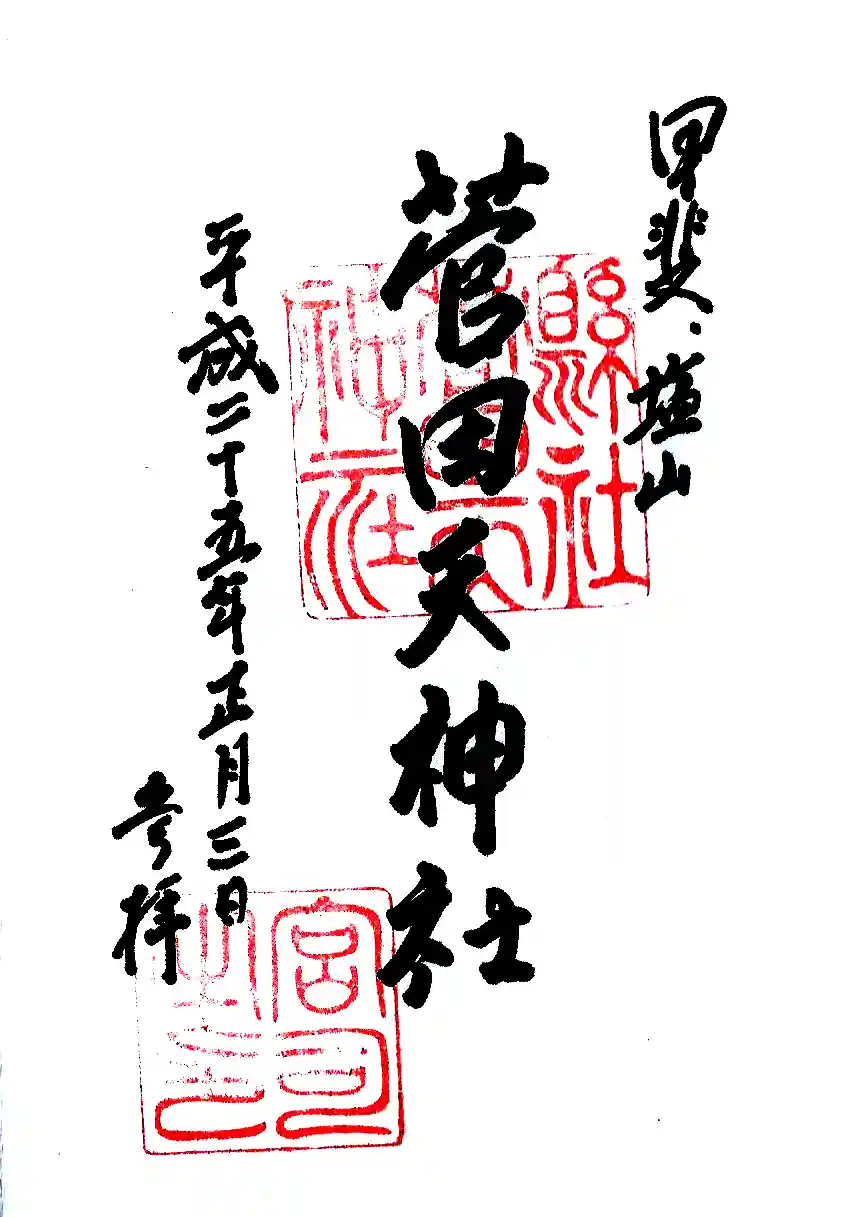 甲斐、塩山
縣社
菅田天
神社
菅田天神社
平成二十五年正月三日
奉拝
宮司
之印